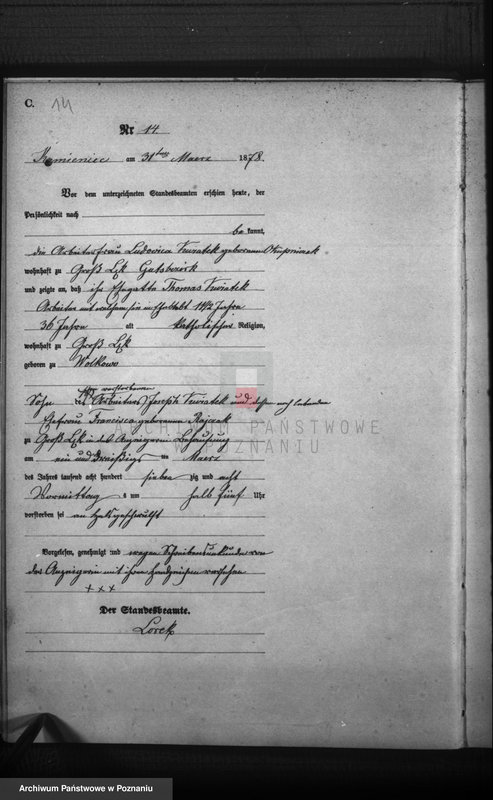 C. 14
Nr 14.
Kamieniec am 31ten Maerz 1878.
Vor dem unterzeichneten Standesbeamten erschien heute, der
Persönlichkeit nach
bekannt,
die Arbeiterfrau Ludovica geborene
wohnhaft zu Groß Lęk Gutsbezirk
und zeigte an, daß ihr Ehegatte Thomas
Arbeiter mit welchem sie in Ehe lebt 11 1/2 Jahre
36 Jahre alt katholischer Religion,
wohnhaft zu Groß Lęk
geboren zu Wolkowo
Sohn des verstorbenen
Arbeiters Joseph und dessen noch lebenden
Ehefrau Francisca geborenen Rajczak
zu Groß Lęk in der Anzeigerin Behausung
am ein und dreißigsten Maerz
des Jahres tausend acht hundert sieben zig und acht
Vormittag s um halb fünf Uhr
verstorben sei an
Vorgelesen, genehmigt und wegen Schreibensunkunde von
der Anzeigerin mit ihren Handzeichen versehen
+ + +
Der Standesbeamte.
Lorck
ARCHIWUM PAŃSTWOWE
W POZNANIU
Archiwum Państwowe w Poznaniu